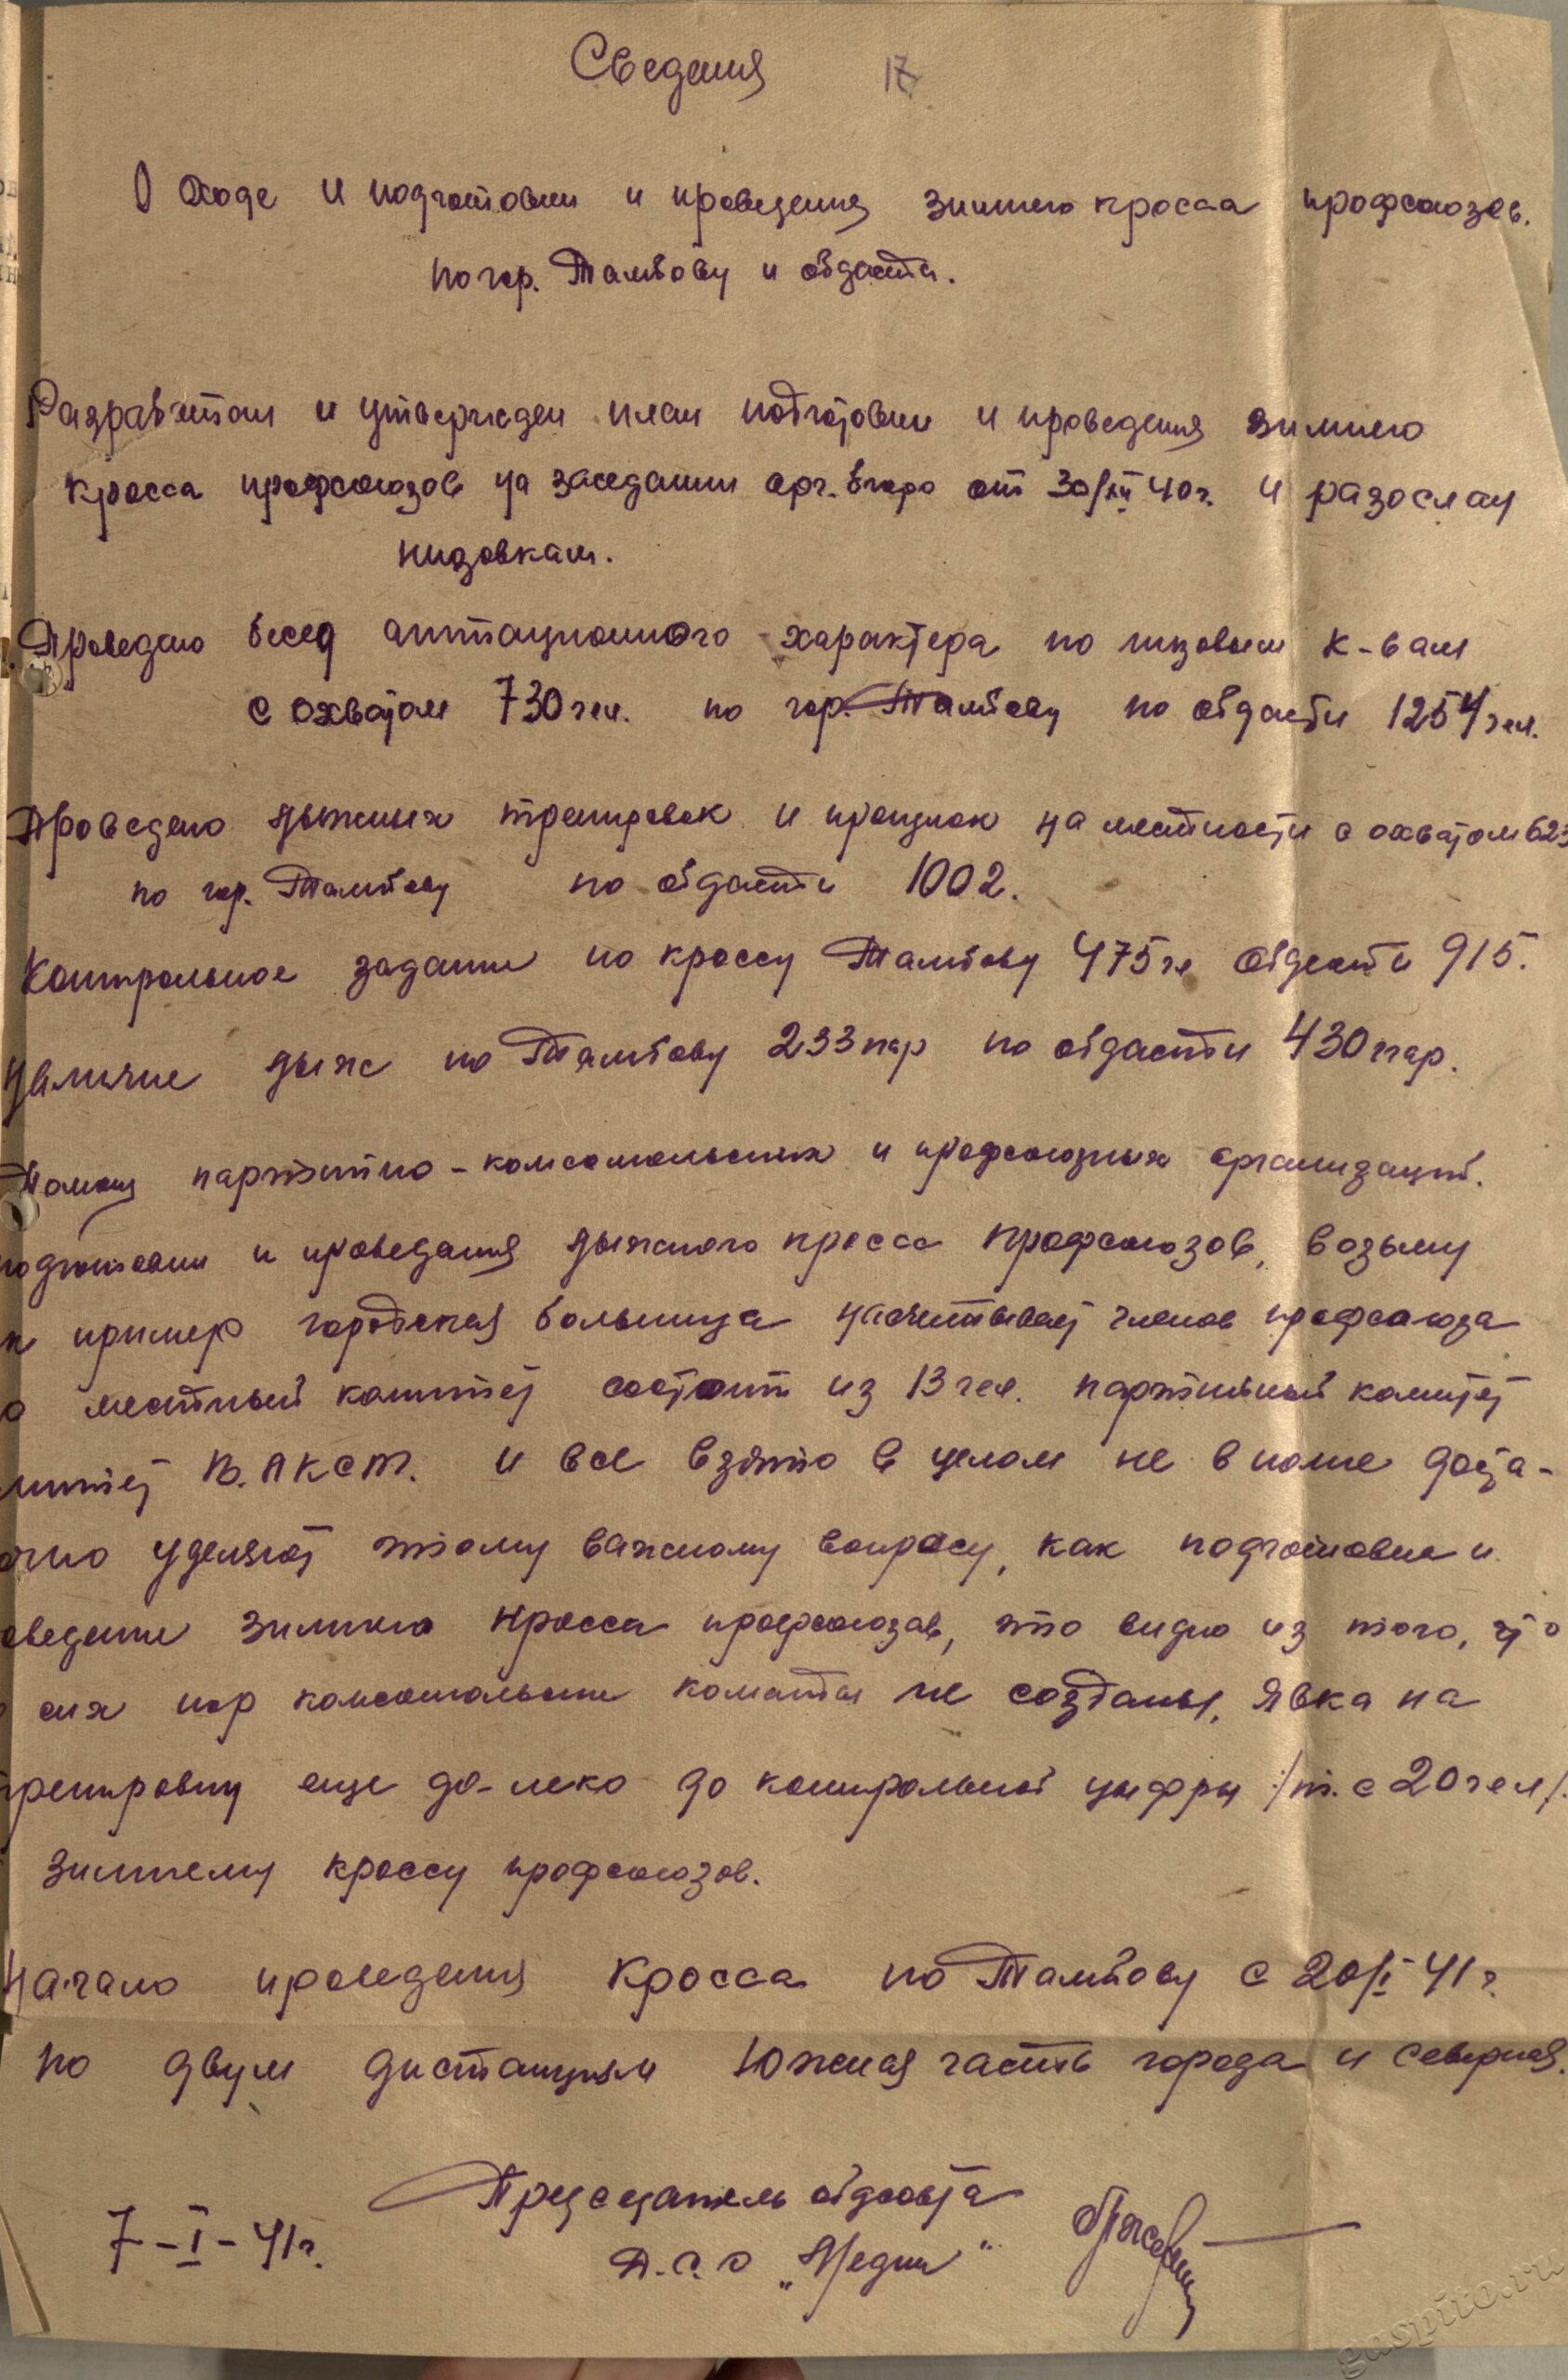 Сведения 17
О ходе и подготовки и проведения зимнего кросса профсоюзов.
по гор. Тамбову и области.
Разработан и утвержден план подготовки и проведения зимнего
кросса профсоюзов на заседании орг. бюро от 30/XII 40 г. и разослан
низовкам.
Проведено бесед агитационного характера по низовым к-вам
с охватом 730 чел. по гор. Тамбову по области 1254 чел.
Проведено лыжных тренировок и прогулок на местности с охватом 623
по гор. Тамбову по области 1002.
Контрольное задание по кроссу Тамбову 475 че области 915.
Наличие лыж по Тамбову 233 пар по области 430 пар.
Помощь партийно-комсомольских и профсоюзных организаций.
подготовки и проведения лыжного кросса профсоюзов, возьму
к пример городская больница насчитывает членов профсоюза
о местный комитет состоит из 13 чел. партийный комитет
митет В.ЛКСМ. и все взято в целом не вполне доста-
очно уделяют этому важному вопросу, как подготовке и
оведение зимнего кросса профсоюзов, это видно из того, что
о сих пор комсомольские команды не созданы, явка на
тренировку еще до-леко до контрольной цыфры /т.е 20 чел/.
зимнему кроссу профсоюзов.
Начало проведения кросса по Тамбову с 20/I 41 г.
по двум дистанциям Южная часть города и северная.
Председатель облсовета
7-I-41 г. Д.С.О „Медик"
gaspito.ru